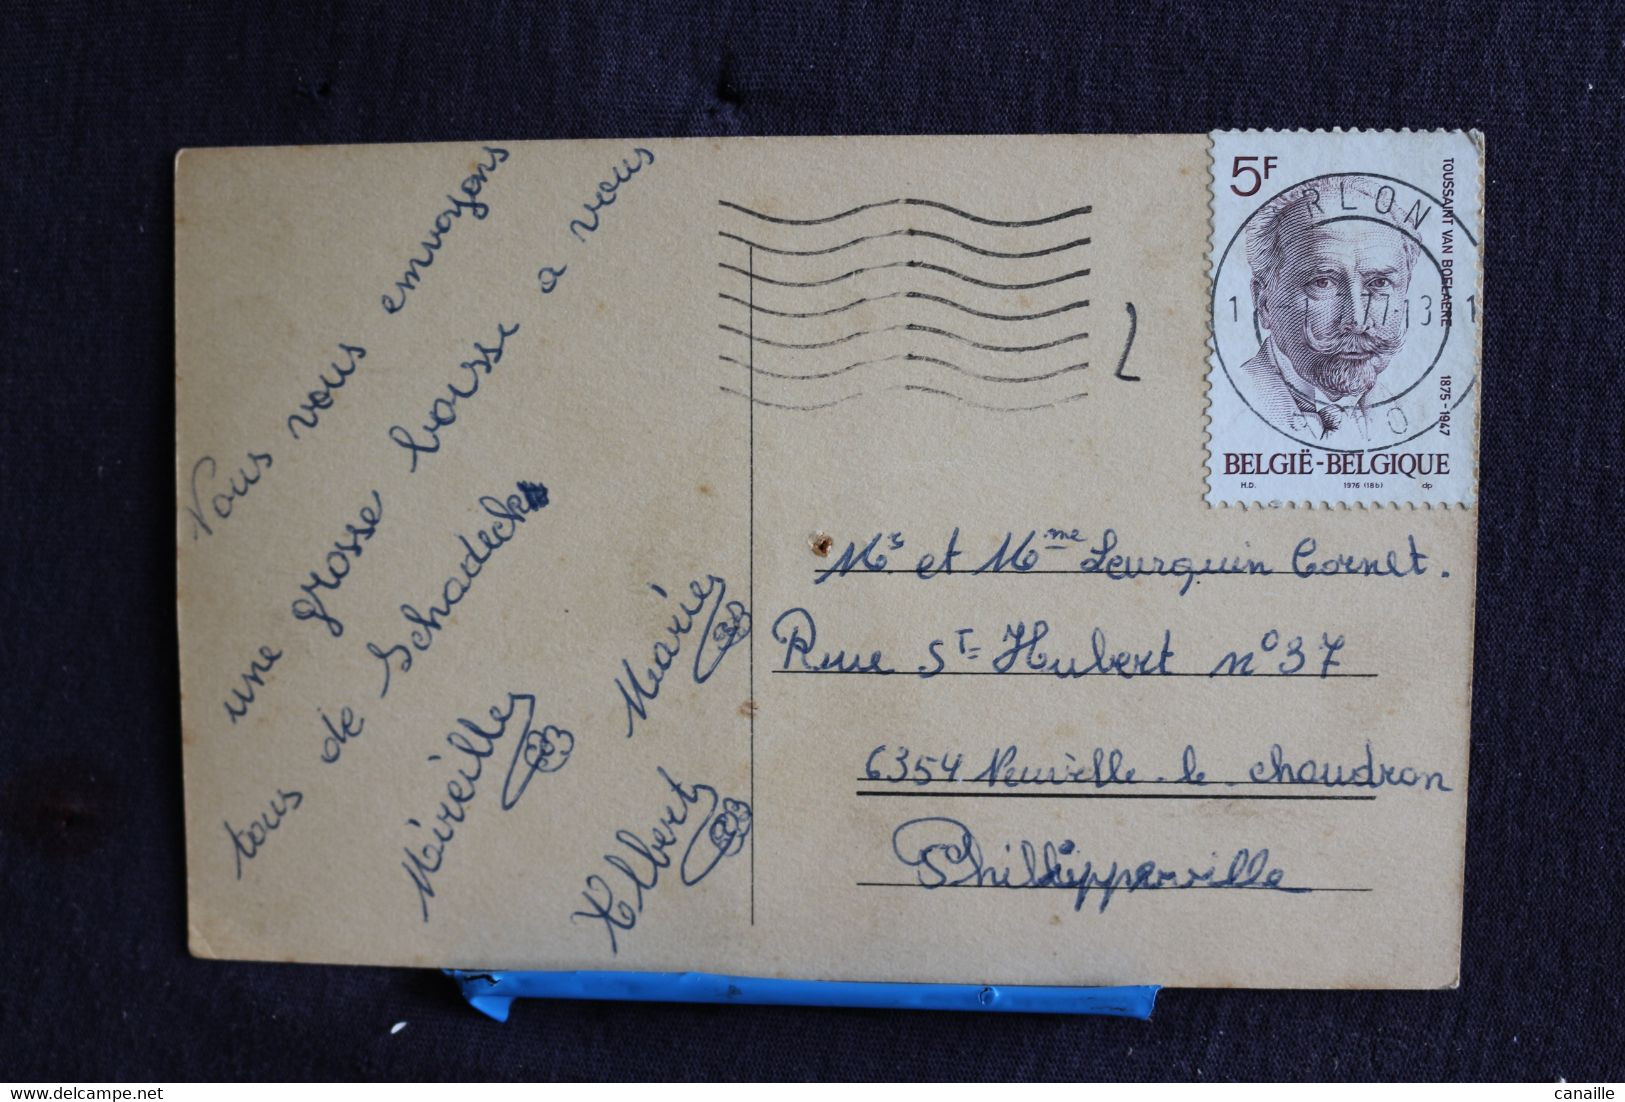 Nous vous emvoyons
une grosse baisse a vous
tous de Schadeck
Mireille
Marie
Albert
5F
TOUSSAINT VAN BOELAERE
1875-1947
BELGIË-BELGIQUE
H.D. 1976 (18b) dp
RLON
1 77-13 1
L
Mr et Mme Leurquin Cornet.
Rue St Hubert n° 37
6354 Neuville-le chaudron
Philippeville
canaille